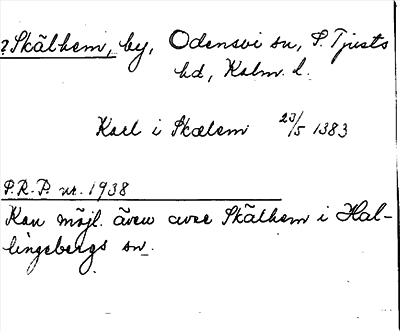 ?Skälhem, by, Odensvi sn, S. Tjusts
hd, Kalm. l.
Karl i Skælem 23/5 1383
P.R.P. nr. 1938
Kan möjl. även avse Skälhem i Hal-
lingebergs sn.